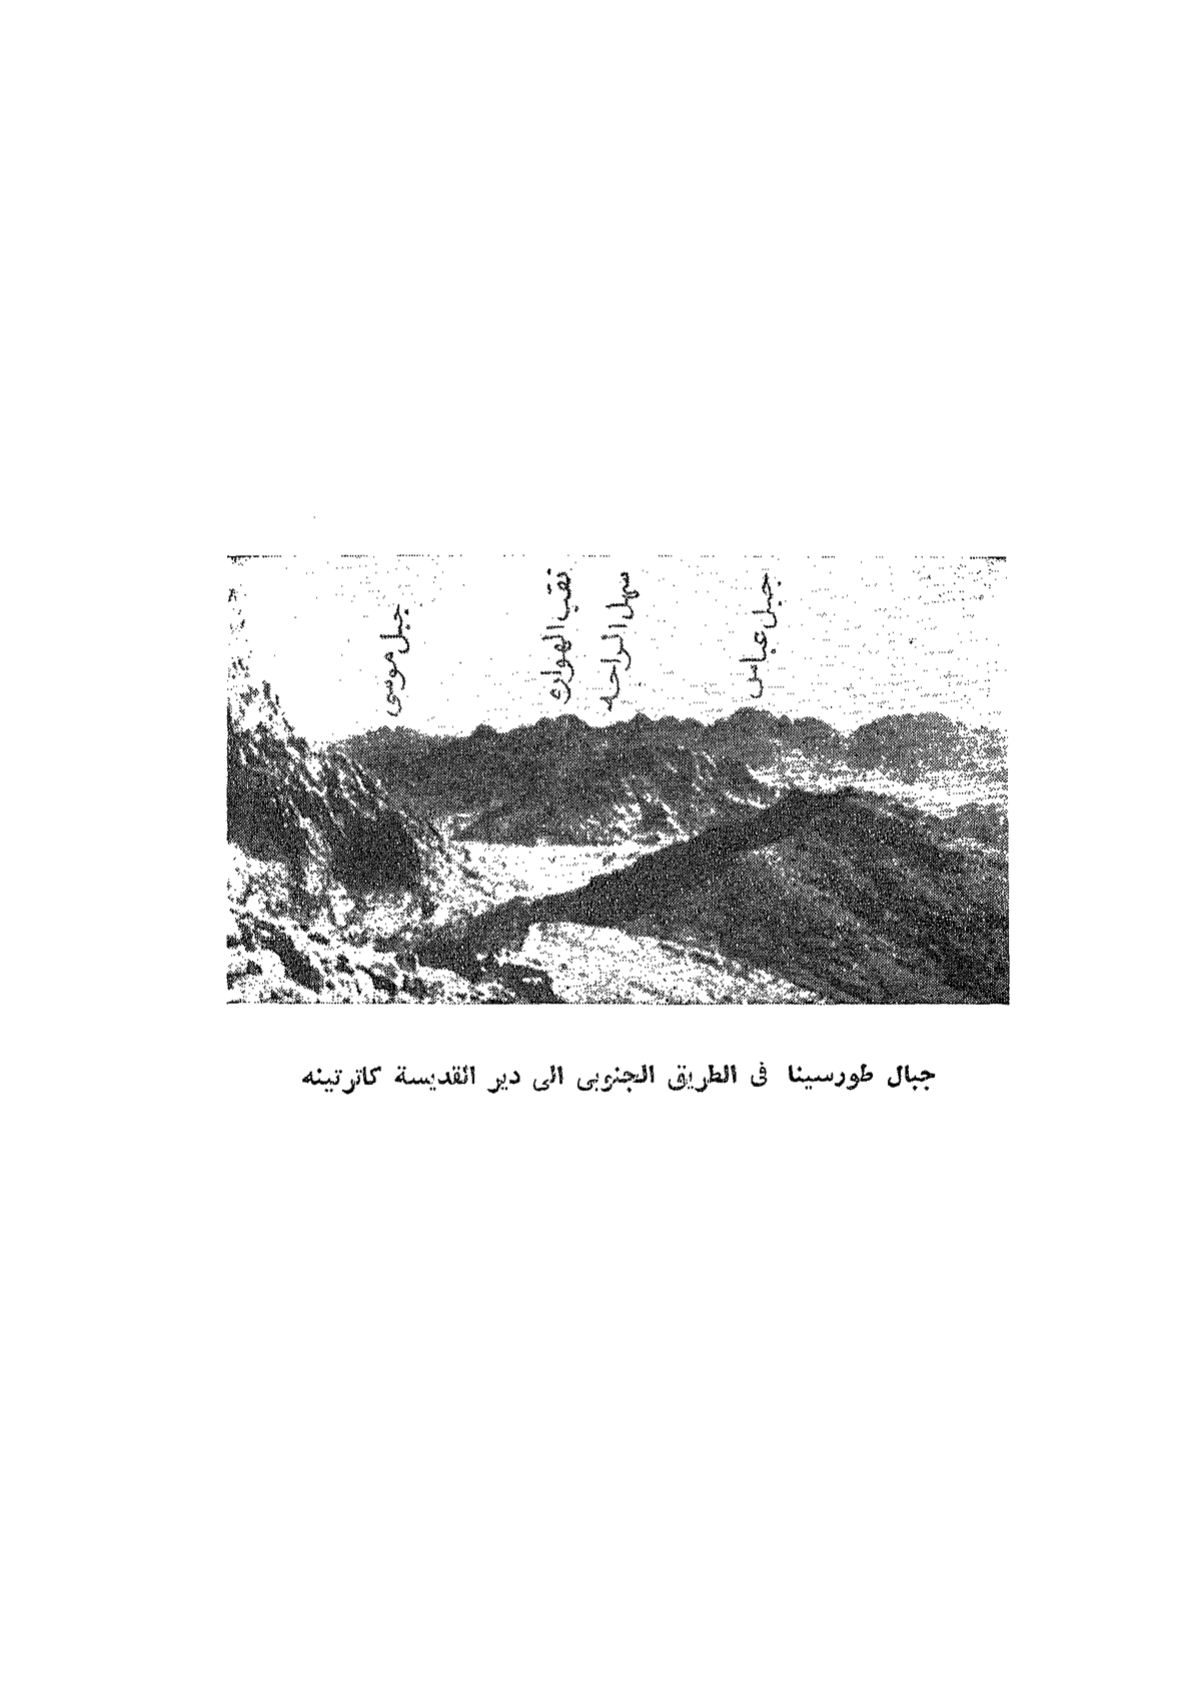 جبل عباس
سهل الراحه
نقب الهواه
جبل موسى
جبال طورسينا فى الطريق الجنوبى الى دير القديسة كاترتينه